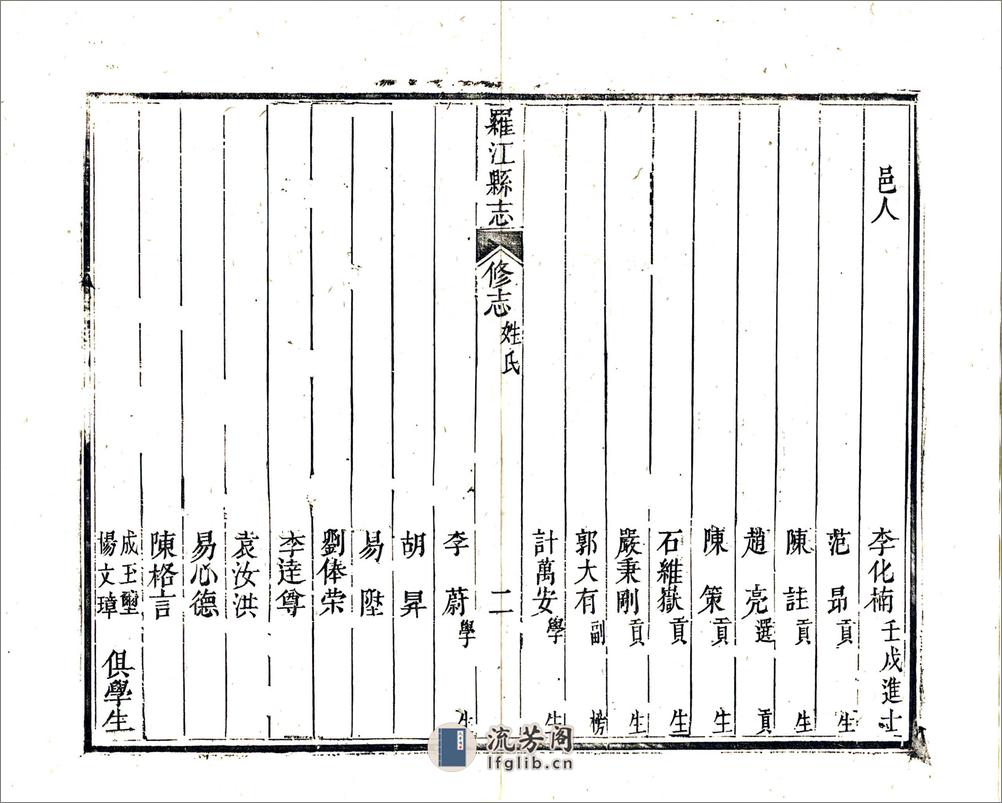 邑人
李化楠壬戌進士
范昂貢生
陳詿貢生
趙亮選貢
陳策貢生
石維嶽貢生
嚴秉剛貢生
郭大有副榜
計萬安學生
羅江縣志 修志 姓氏 二
李蔚學生
胡昇
易陞
劉俸荣
李逹尊
袁汝洪
易心德
陳格言
成王璽
楊文璋
俱學生
流芳阁
lfglib.cn